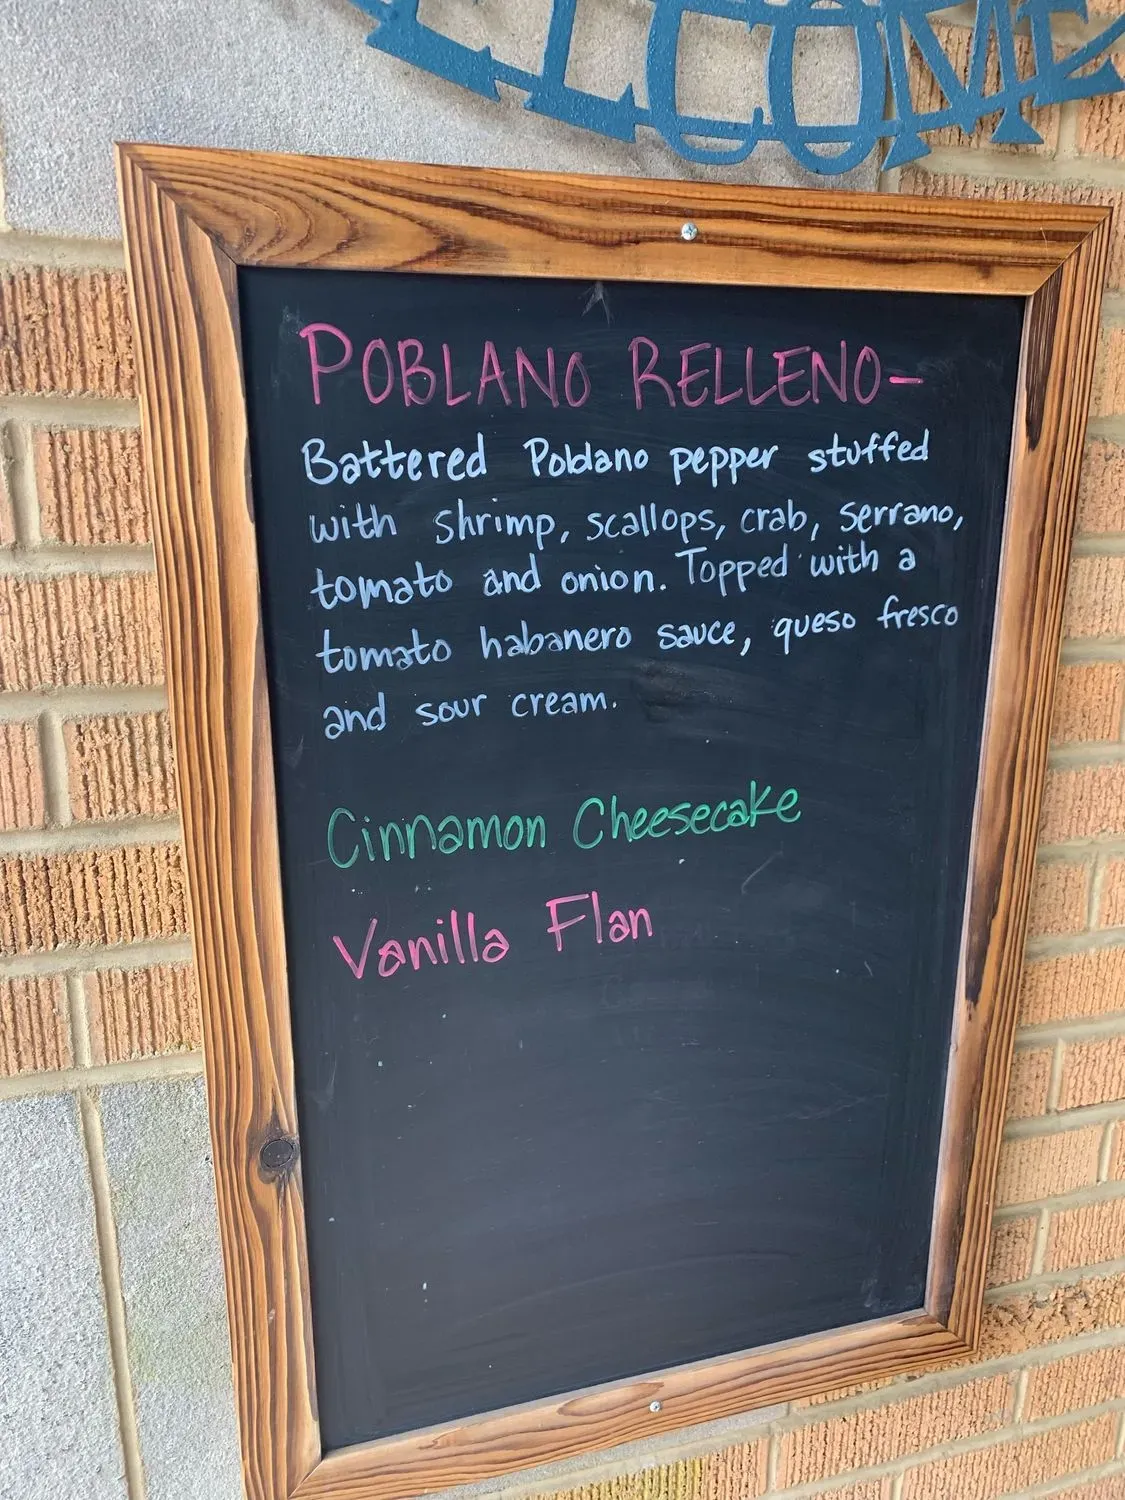 WELCOME
POBLANO RELLENO-
Battered Poblano pepper stuffed
with shrimp, scallops, crab, serrano,
tomato and onion. Topped with a
tomato habanero sauce, queso fresco
and sour cream.
Cinnamon Cheesecake
Vanilla Flan